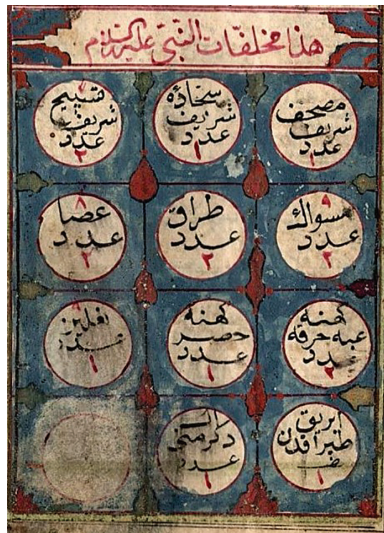 هذا مخلفات النبي عليه السلام
مصحف
شريف
عدد
١
سجاده
شريف
عدد
١
تسبيح
شريف
عدد
٢
مسواك
عدد
٢
طراق
عدد
٢
عصا
عدد
٢
كهنه
حرقه
عدد
٢
كهنه
حصر
عدد
١
نعلين
عدد
١
ابريق
١
عدد
١